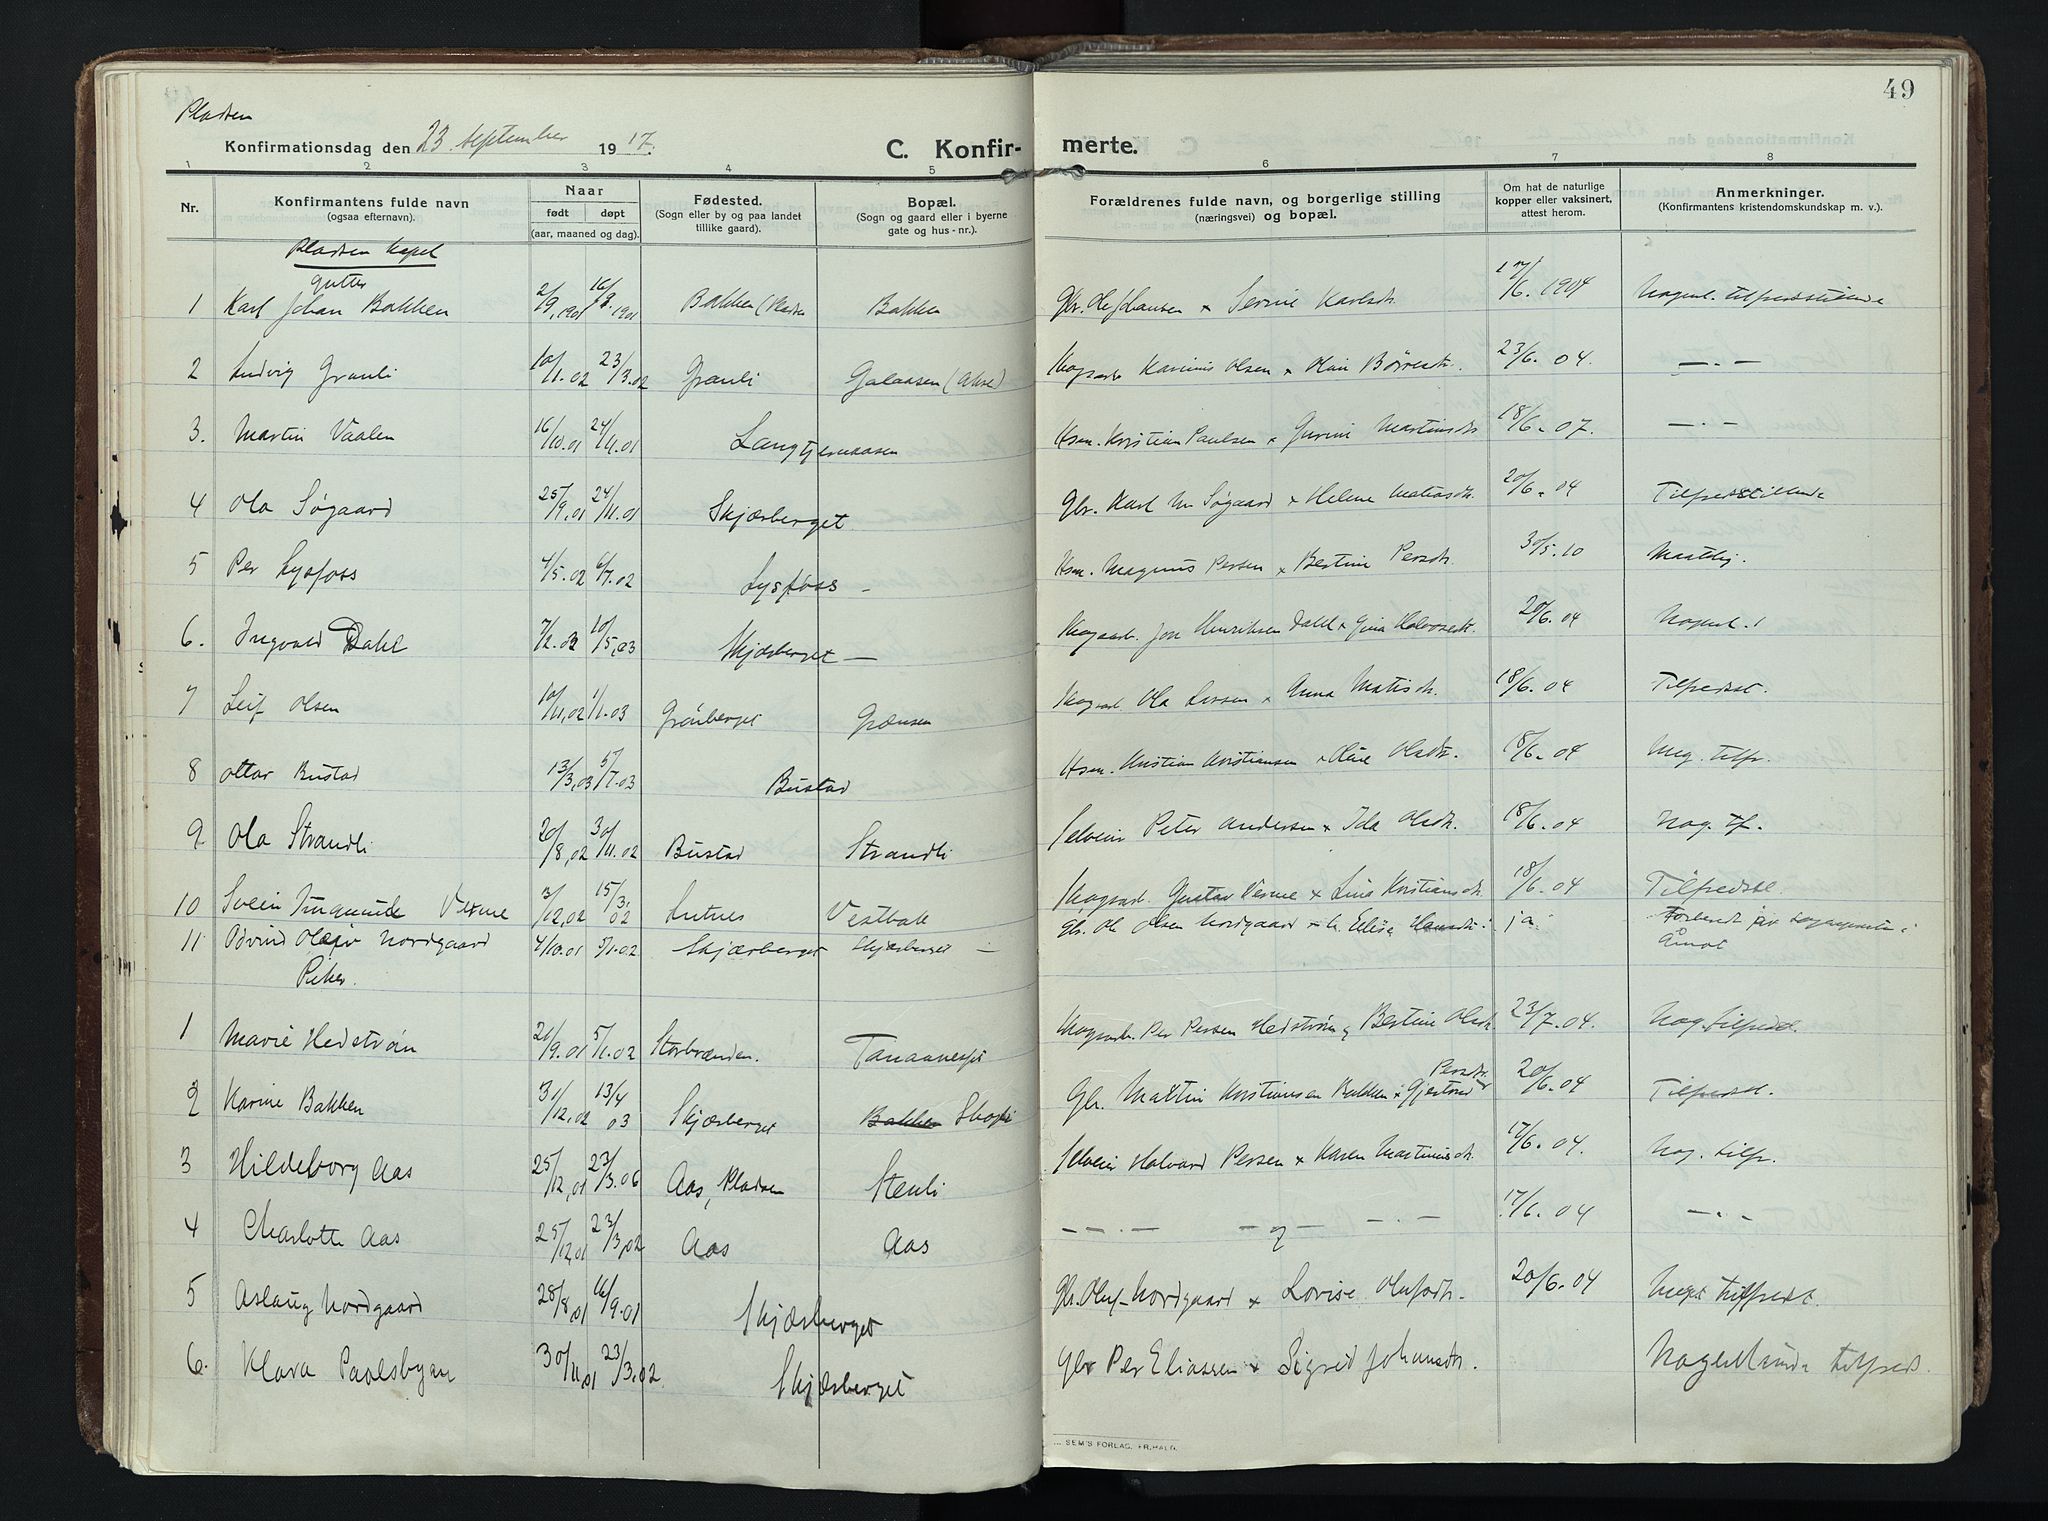 49
Pladsen
Konfirmationsdag den 23 September 1917.
C. Konfir- merte.
1 2 3 4 5 6 7 8
Nr. Konfirmantens fulde navn (ogsaa efternavn). Naar født døpt (aar, maaned og dag). Fødested. (Sogn eller by og paa landet tillike gaard). Bopæl. (Sogn og gaard eller i byerne gate og hus-nr.). Forældrenes fulde navn, og borgerlige stilling (næringsvei) og bopæl. Om hat de naturlige kopper eller vaksinert, attest herom. Anmerkninger. (Konfirmantens kristendomskundskap m. v.).
Pladsen Kapel
Gutter
1 Karl Johan Bakken 2/9.1901 16/8.1901 Bakken (Pladsen Bakken Gbr. Olaf Hansen x Serine Karlsdr. 17/6.1904 Nogenl. tilfredsstillende
2 Ludvig Granli 10/1.02 23/3.02 Granli Galaasen Skogsarb. Karinus Olsen x Oline Børresdr. 23/6.04. —.—
3. Martin Vaalen 16/10.01 24/11.01 Langtjernaasen Hsm. Kristian Paulsen x Gurine Martinsdr 18/6-07. —.—
4 Ola Søgaard 25/9.01 24/11.01 Skjæsberget Gbr. Karl M Søgaard x Helene Matiasdr. 20/6-04 Tilfredsstillende
5 Per Lysfoss 4/5.02 6/7.02 Lysfoss — Hsm. Magnus Persen x Bertine Persdr. 30/5.10 Maadelig.
6. Ingvald Dahl 7/2.03 10/5.03 Skjæsberget — Skogsarb. Jon Henriksen Dahl x Gina Halvorsdr. 20/6.04 Nogenl.
7 Leif Olsen 10/11.02 1/1.03 Grønberget Grænsen Skogsarb. Ola Larsen x Anna Matisdr. 18/6.04 Tilfredsst.
8 Ottar Bustad 13/3.03 5/7.03 Bustad Hsm. Kristian Kristiansen x Oline Olsdr. 18/6-04 Meg. tilfr.
9 Ola Strandli 20/8.02 30/11.02 Bustad Strandli Selveier Peter Andersen x Ida Olsdr. 18/6-04 Nog. tf.
10 Svein Ingemund Verme 3/12.02 15/3.02 Lutnes Vestbak Skogsarb. Gustav Verme x Lina Kristiansdr. 18/6-04 Tilfredsst.
11 Odvind Olav Nordgaard 4/10.01 5/1.02 Skjæsberget Skjæsberget — Gbr. Ole Olsen Nordgaard x h. Elise Hansdr. ja Forberedt av sogneprest i Åmot
Piker.
1 Marie Hedstrøm 21/9.01 5/1.02 Storbrænden. Tanaaneset Skogsarb. Per Persen Hedstrøm og Bertine Olsdr. 23/7-04. Nog. tilfredsst.
2 Karine Bakken 31/12.02 13/4 03 Skjæsberget Bakken Skogli Gbr. Martin Kristiansen Bakken x Gjertrud Persdr. 20/6-04 Tilfredsst.
3 Hildeborg Aas 25/12.01 23/3.06 Aas, Pladsen Stenli Selveier Halvard Persen x Karen Martinusdr. 17/6-04. Nog. tilfr.
4 Charlotte Aas 25/12.01 23/3.02 Aas Aas — —.— — og — —.— — 17/6.04 —.—
5 Aslaug Nordgaard 28/8.01 16/9.01 Skjæsberget Gbr. Oluf Nordgaard x Lovise Olufsdr. 20/6-04 Meget tilfredst.
6. Klara Paalsbyen 30/11.01 23/3.02. Skjæsberget Gbr Per Eliassen x Sigrid Johansdr. Nogenlunde tilfreds
SEM'S FORLAG, FR.HALD.